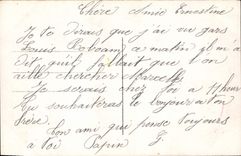 Chère Amie Ernestine
Je te dirais que j'ai vu gars
Louis ce matin il m'a
dit qu'il fallait que l'on
aille chercher Marcel
Je serais chez toi a 11 heure
tu souhaiteras le bonjour a ton
frère.
Ton ami qui pense toujours
a toi